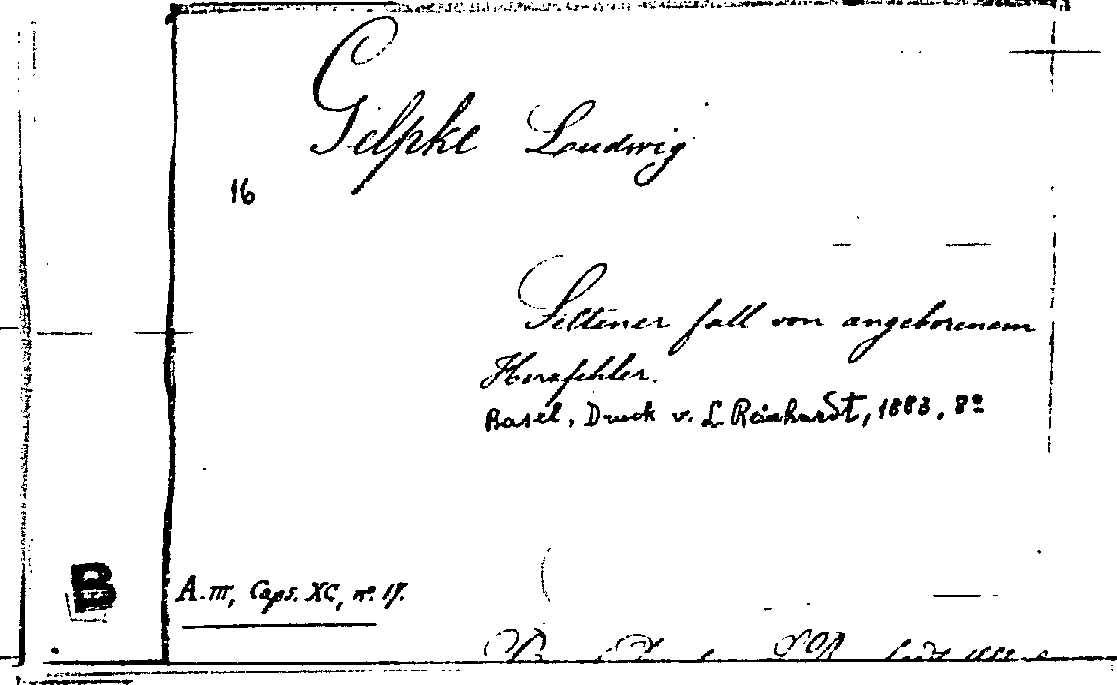 Gilpke Loudwig
16
Seltener fall von angeborenem
Herzfehler.
Basel, Druck v. L. Reinhardt, 1883, 8º
B
A.III, Caps. XC, nº 17.